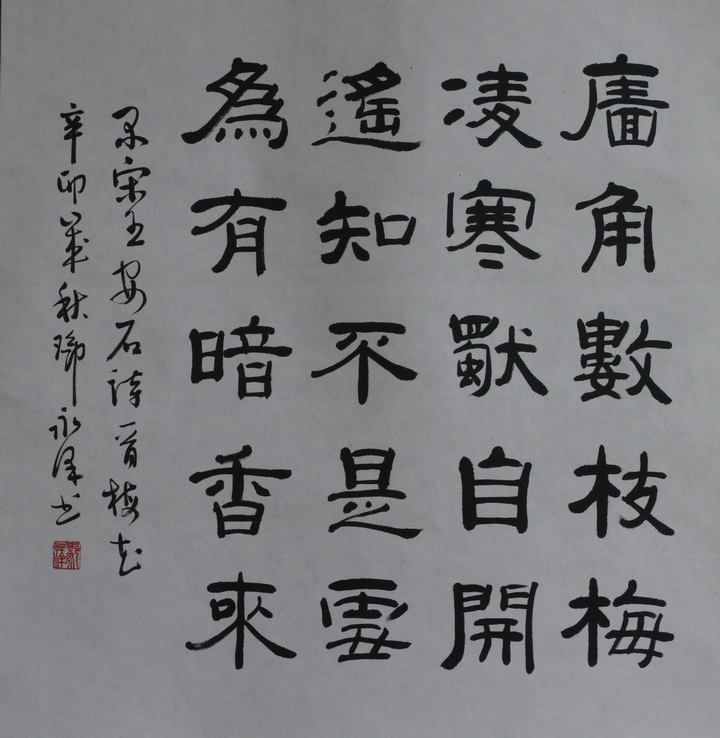 廧角數枝梅
凌寒獨自開
遙知不是雪
為有暗香來
录宋王安石詩一首梅花
辛卯歲秋鄭永澤书